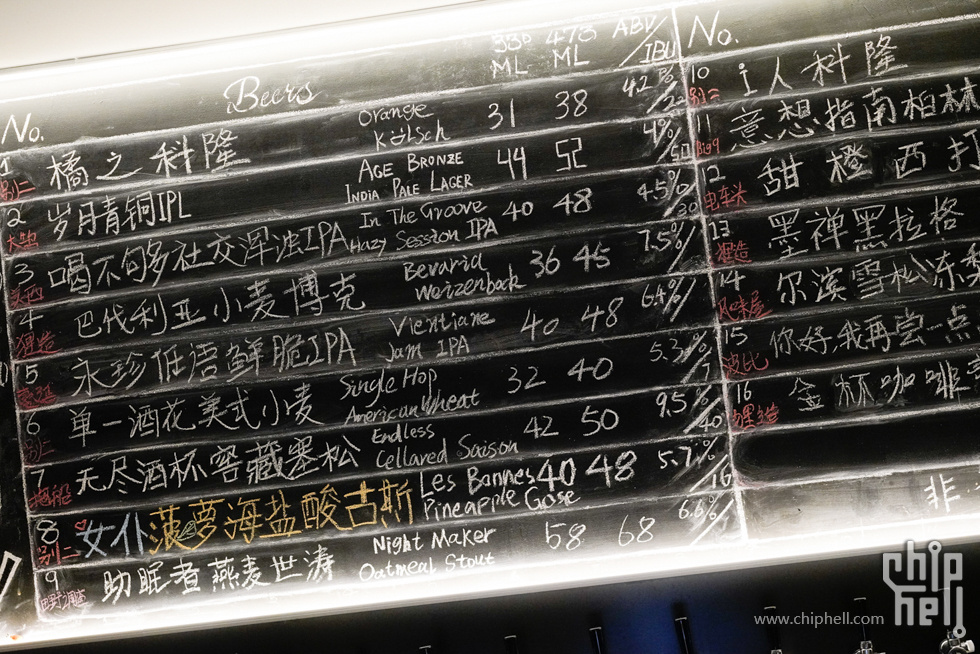 No. Beers 330 ML 473 ML ABV/IBU
1 别二 橘之科隆 Orange Kölsch 31 38 4.2%/22
2 大鸫 岁月青铜IPL Age Bronze India Pale Lager 44 52 4%/50
3 喝不够多社交浑浊IPA In The Groove Hazy Session IPA 40 48 4.5%/20
4 狸造 巴伐利亚小麦博克 Bevaria Weizenbock 36 45 7.5%/
5 永珍低语鲜脆IPA Vientiane Jam IPA 40 48 6.4%/
6 别二 单一酒花美式小麦 Single Hop American Wheat 32 40 5.3%/
7 无尽酒杯·窖藏塞松 Endless Cellared Saison 42 50 9.5%/40
8 别二 女仆菠萝海盐酸古斯 Les Bannes Pineapple Gose 40 48 5.7%/16
9 助眠者燕麦世涛 Night Maker Oatmeal Stout 58 68 6.6%/
No.
10 别二 i人科隆
11 Big9 意想指南柏林
12 电车头 甜橙西打
13 狸造 墨禅黑拉格
14 风味屋 尔滨雪松冻梨
15 波比 你好,我再尝一点
16 金杯咖啡
非
chip hell
www.chiphell.com